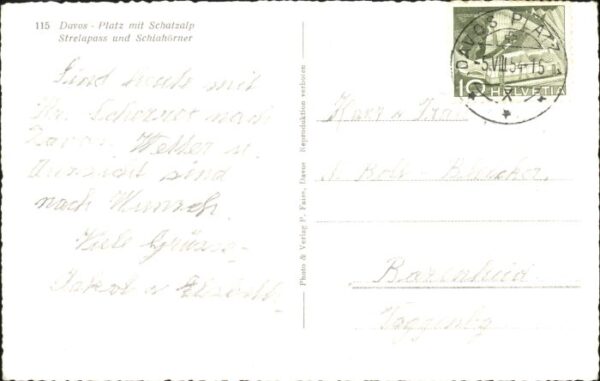 115 Davos - Platz mit Schatzalp
Strelapass und Schiahörner
Sind heute mit
nach
Davos. Wetter u.
Aussicht sind
nach Wunsch.
Viele Grüsse
Jakob u
Photo & Verlag F. Fuss, Davos Reproduktion verboten
DAVOS PLATZ
-5.VIII.54-15
10 HELVETIA
Herr u Frau
Bazenheid
Toggenbg